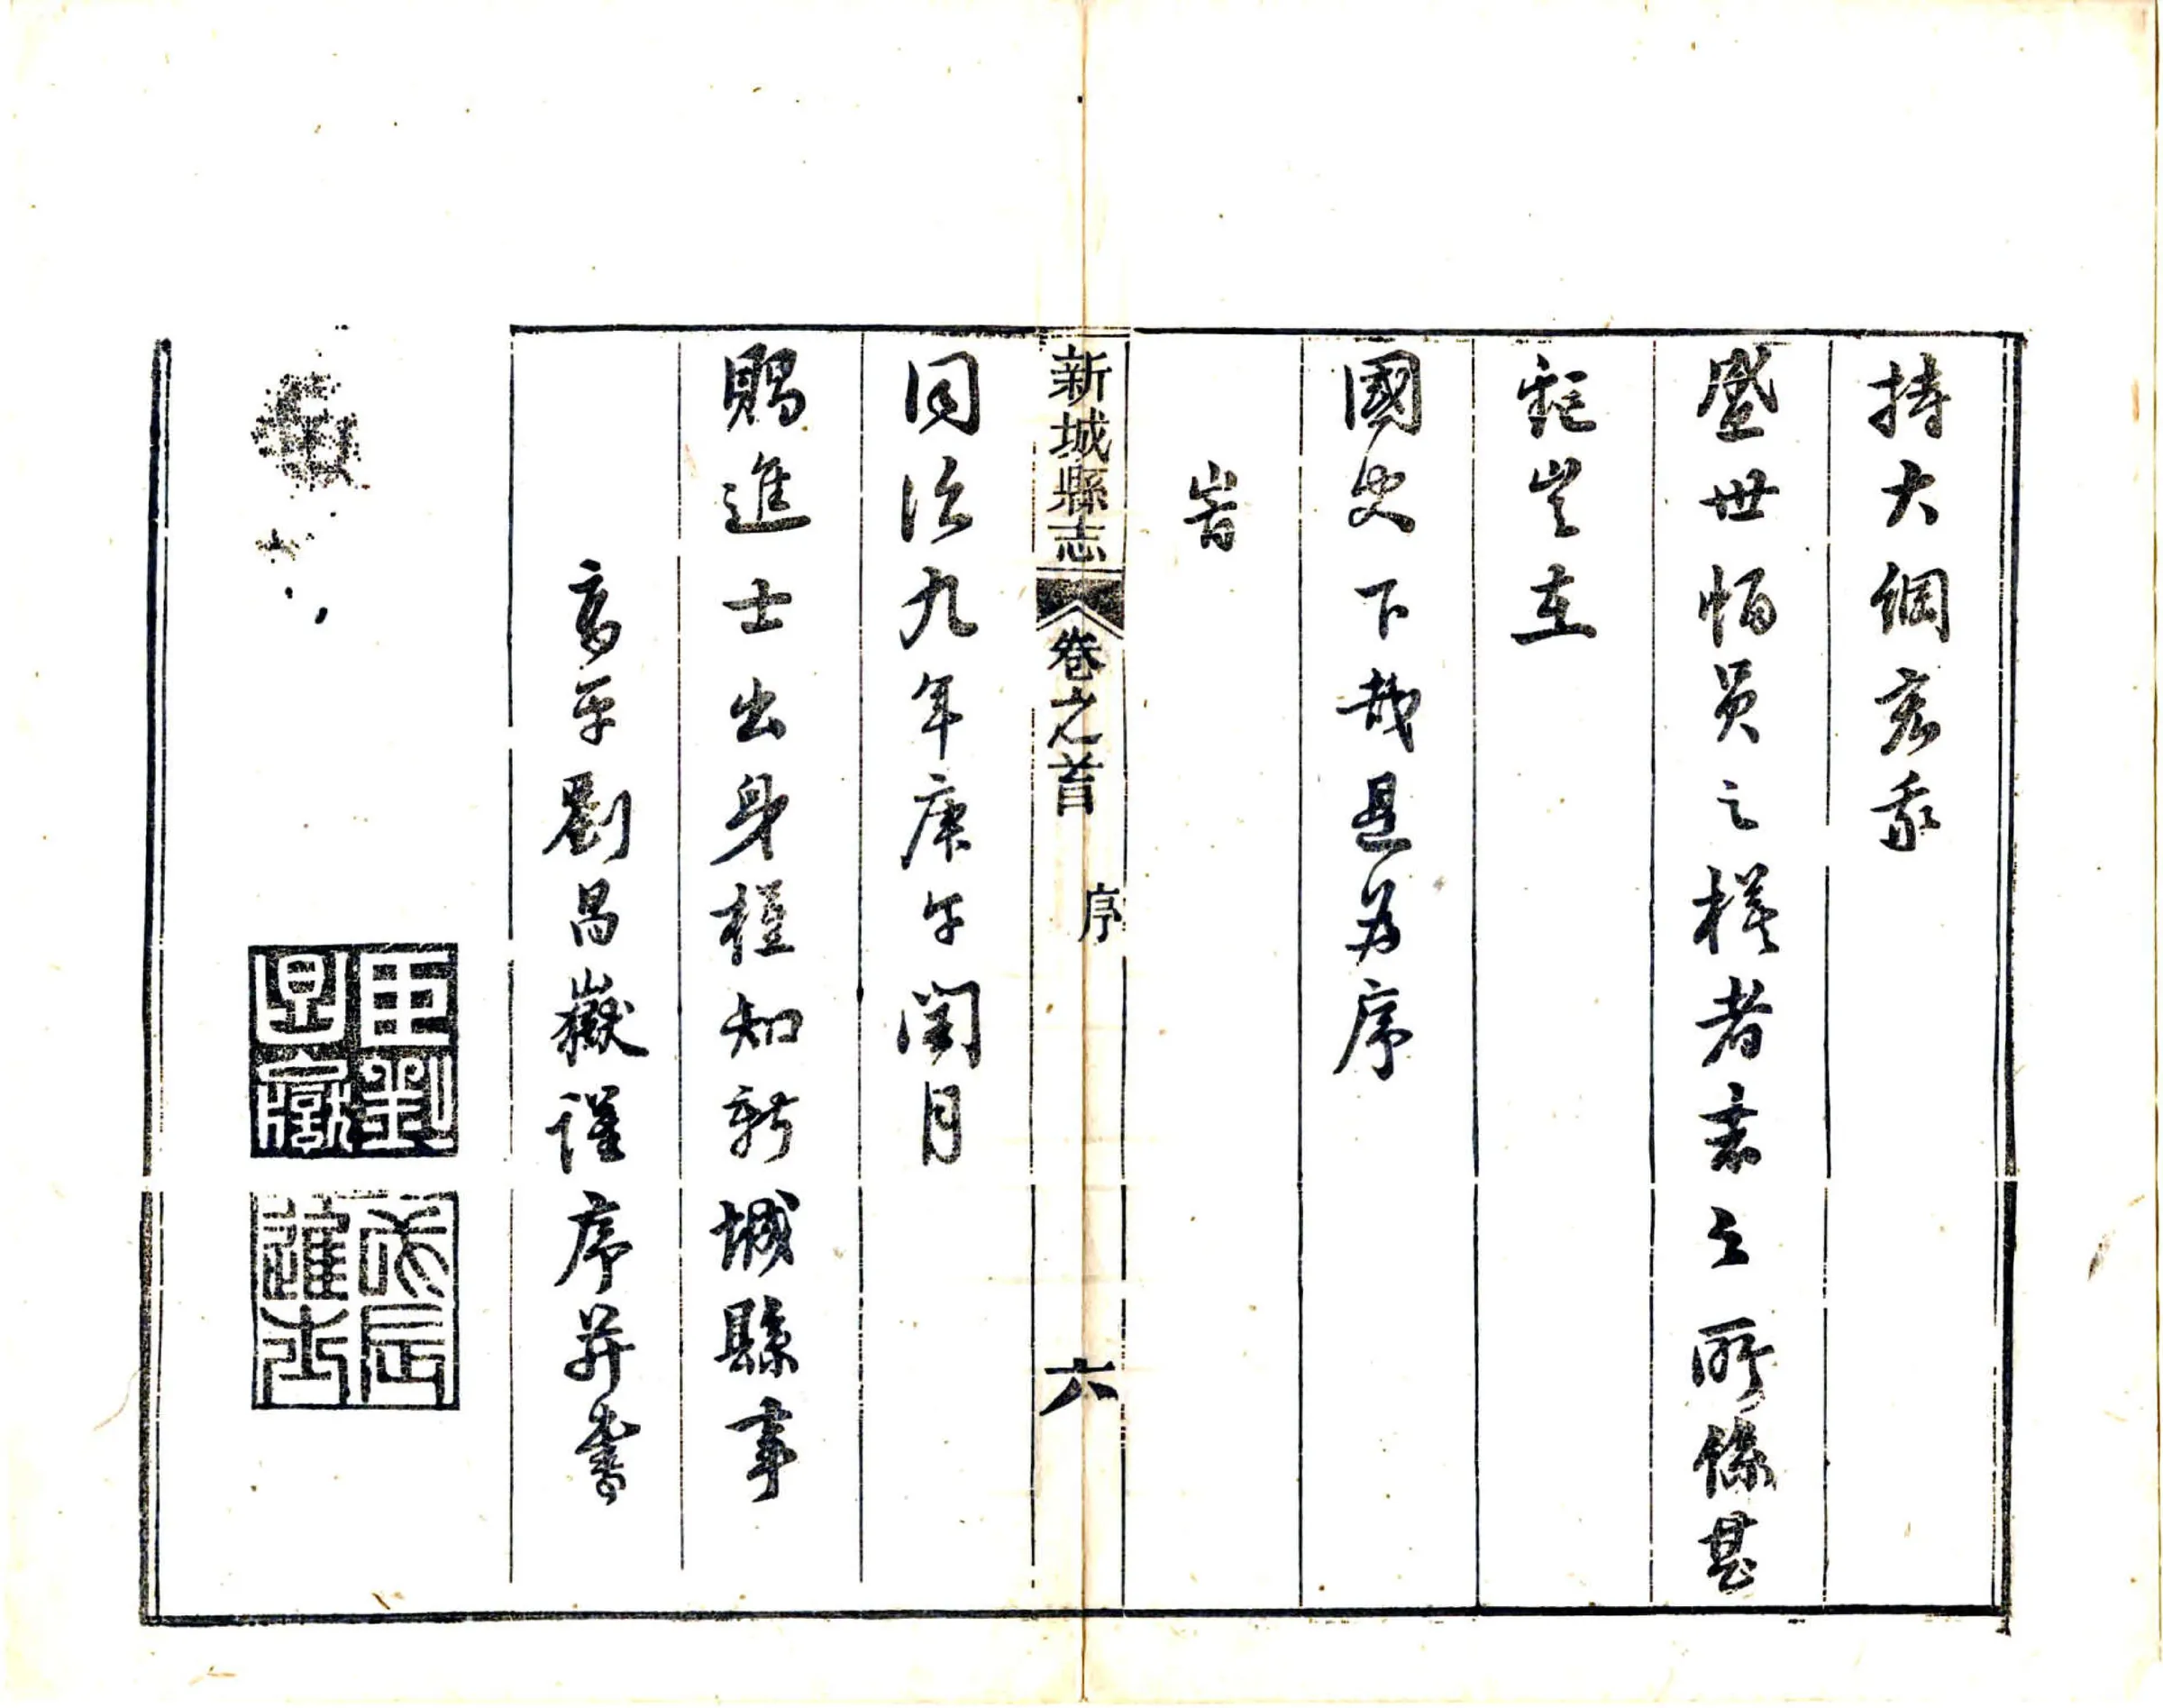 持大綱宏我
盛世幅員之模者志之所係甚
鉅豈在
國史下哉是為序
峕
新城縣志 卷之首 序 六
同治九年庚午閏月
賜進士出身權知新城縣事
高平劉昌嶽謹序并書
臣劉昌嶽
戊辰進士